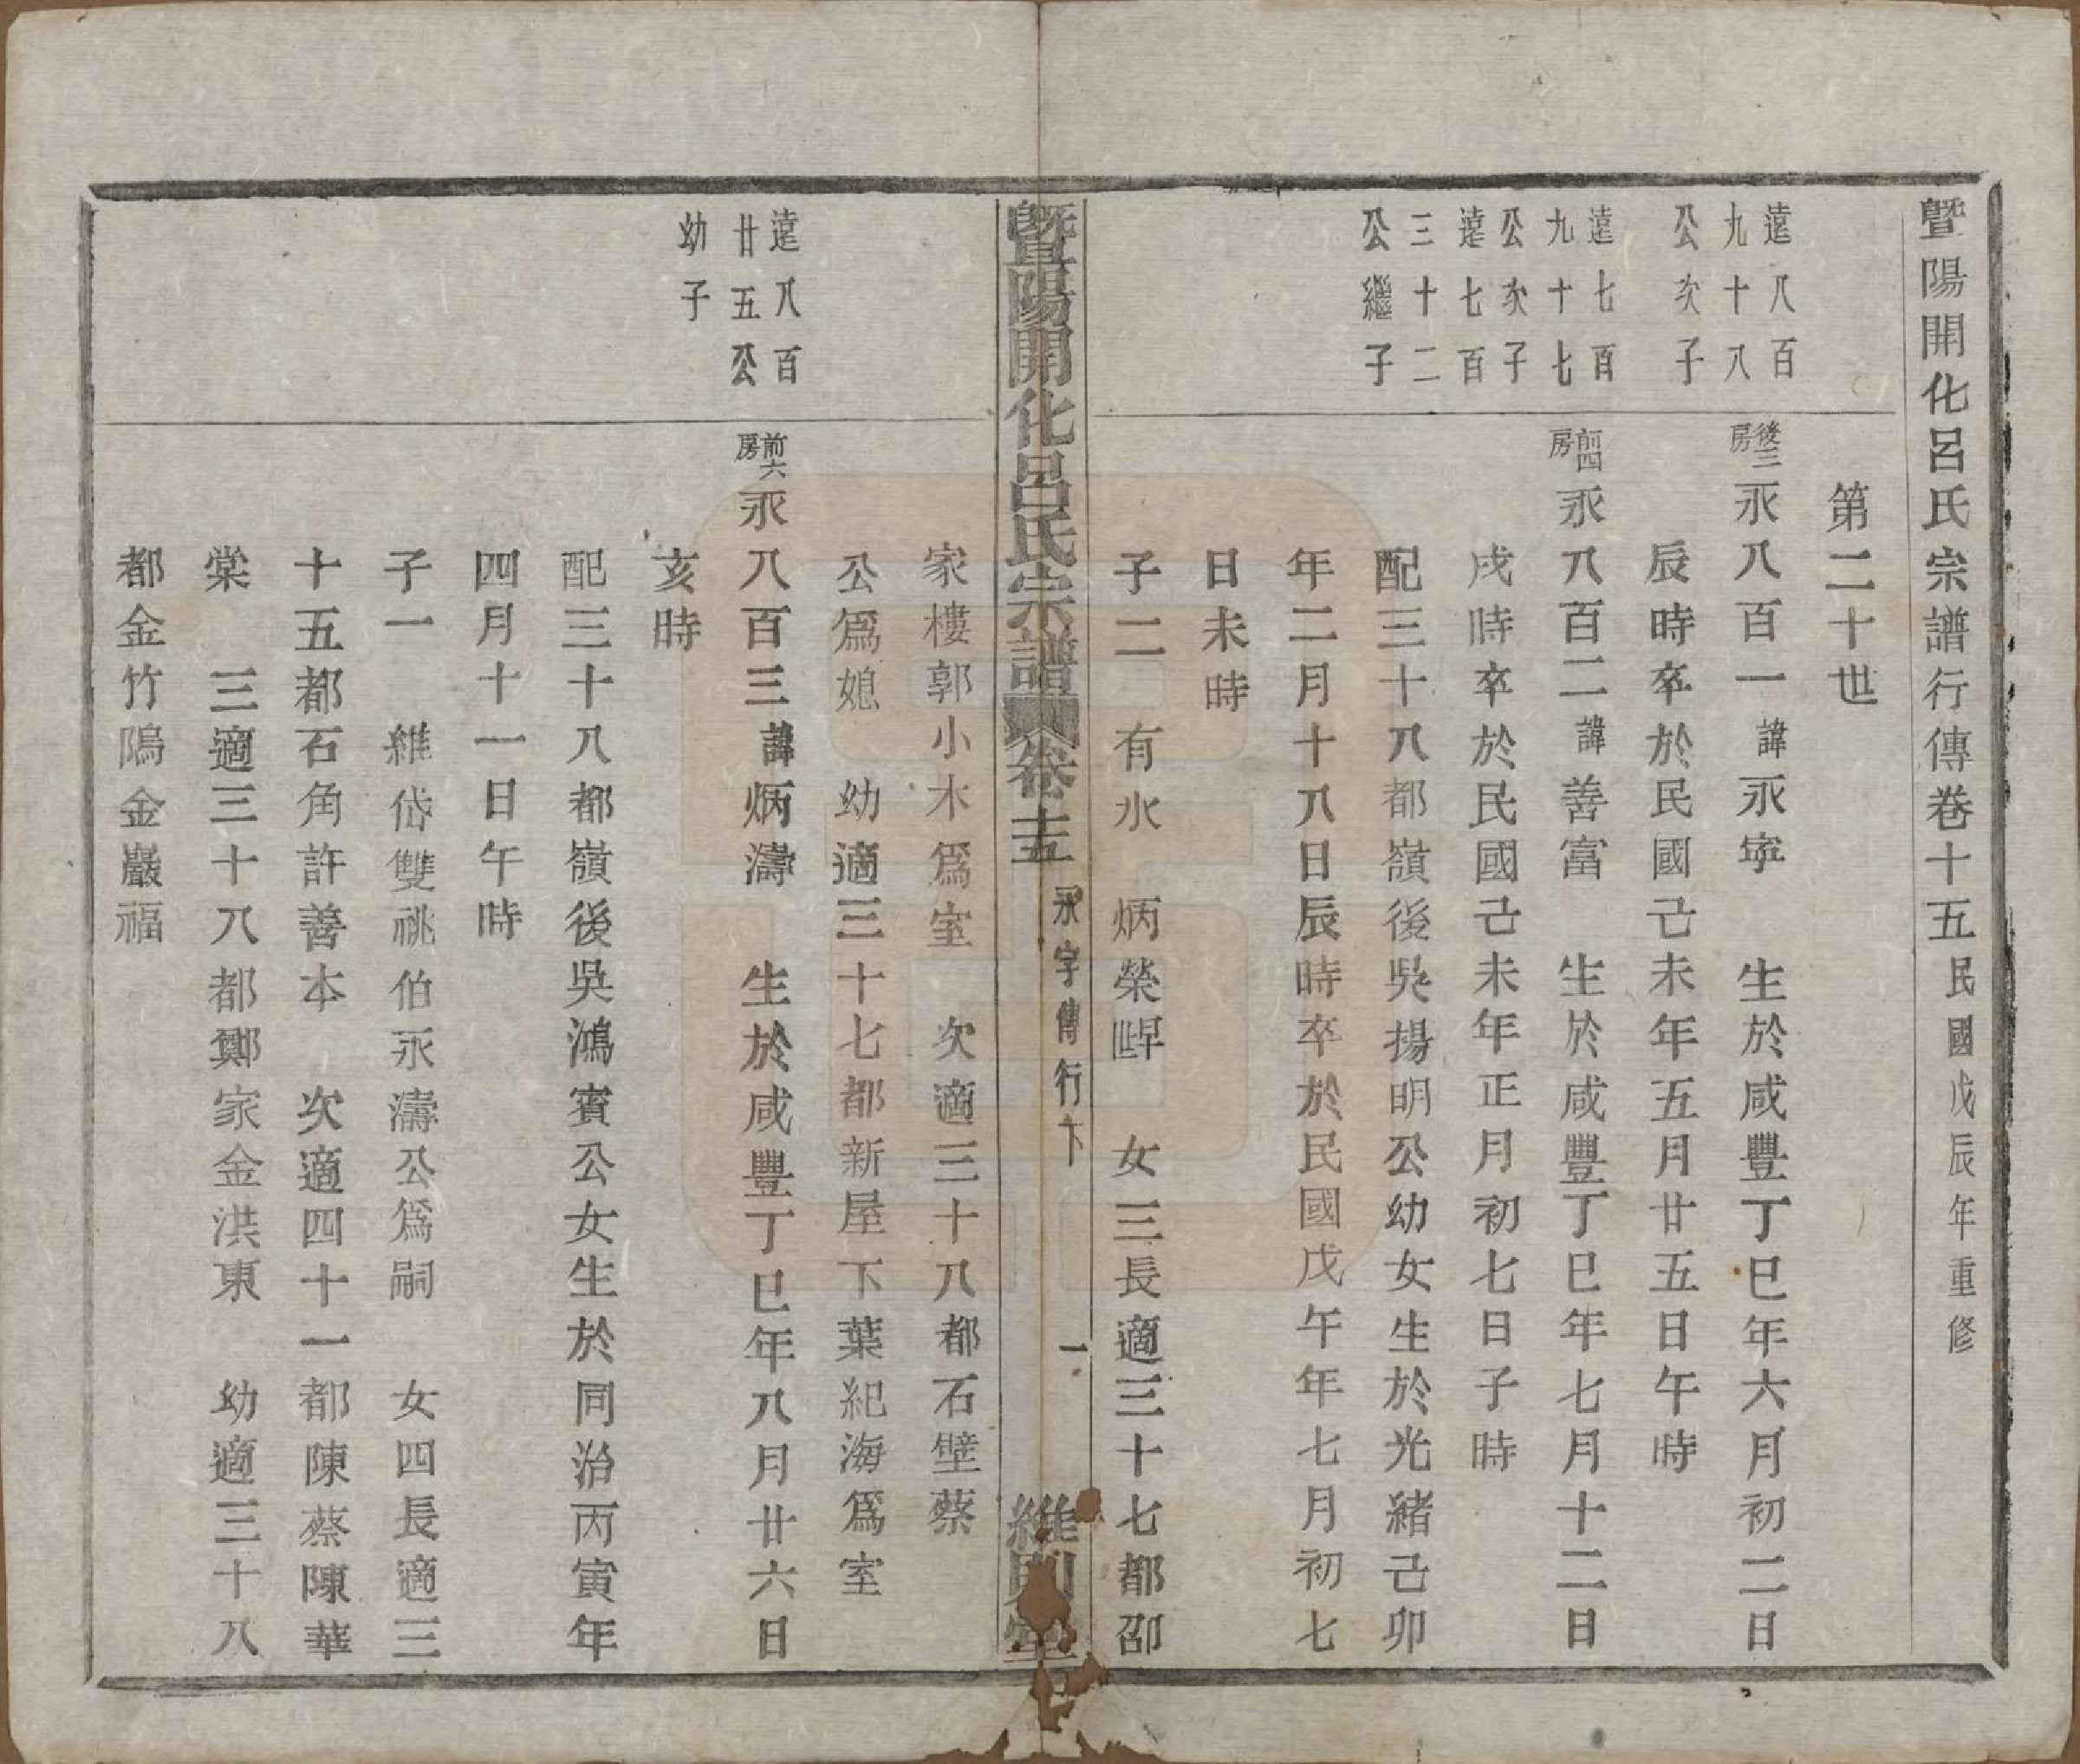 暨陽開化呂氏宗譜行傳卷十五民國戊辰年重修
第二十世
遠八百
九十八
公次子
後三房永八百一諱永寧 生於咸豐丁巳年六月初二日
辰時卒於民國己未年五月廿五日午時
遠七百
九十七
公次子
前四房永八百二諱善富 生於咸豐丁巳年七月十二日
戌時卒於民國己未年正月初七日子時
遠七百
三十二
公繼子
配三十八都嶺後吳揚明公幼女生於光緒己卯
年二月十八日辰時卒於民國戊午年七月初七
日未時
子二 有水 炳榮 女三長適三十七都邵
暨陽開化呂氏宗譜卷十五 永字傳行下 一 維則堂
家樓郭小木爲室 次適三十八都石壁蔡
公爲媳 幼適三十七都新屋下葉紀海爲室
遠八百
廿五公
幼子
前六房永八百三諱炳濤 生於咸豐丁巳年八月廿六日
亥時
配三十八都嶺後吳鴻賓公女生於同治丙寅年
四月十一日午時
子一 維岱雙祧伯永濤公爲嗣 女四長適三
十五都石角許善本 次適四十一都陳蔡陳華
棠 三適三十八都鄭家金洪東 幼適三十八
都金竹隖金巖福